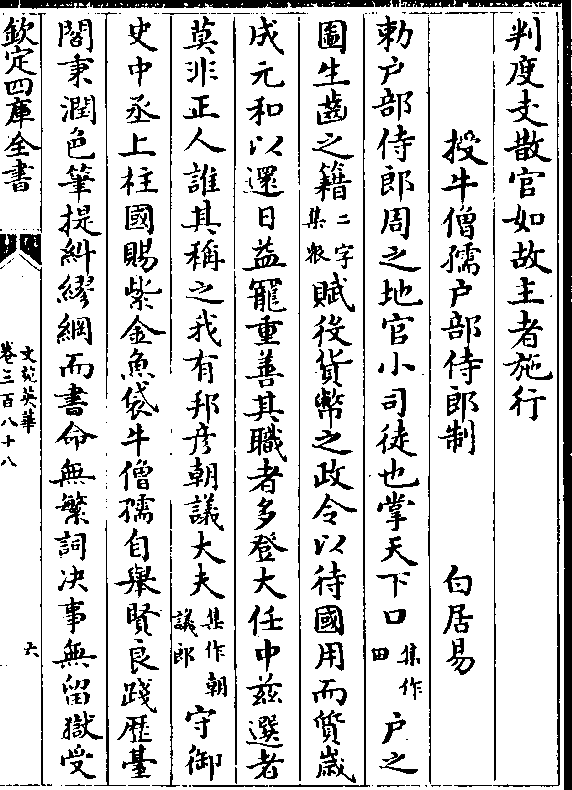 判度支散官如故主者施行
授牛僧孺户部侍郎制 白居易
勅户部侍郎周之地官小司徒也掌天下口集作田户之
圖生齒之籍二字集狠賦役貨幣之政令以待國用而質歳
成元和以還日益寵重善其職者多登大任中兹選者
莫非正人誰其稱之我有邦彦朝議大夫集作朝議郎守御
史中丞上柱國賜紫金魚袋牛僧孺自舉賢良踐歴臺
閣秉潤色筆提紏繆綱而書命無繁詞决事無留獄受
欽定四庫全書
文苑英華
卷三百八十八
六